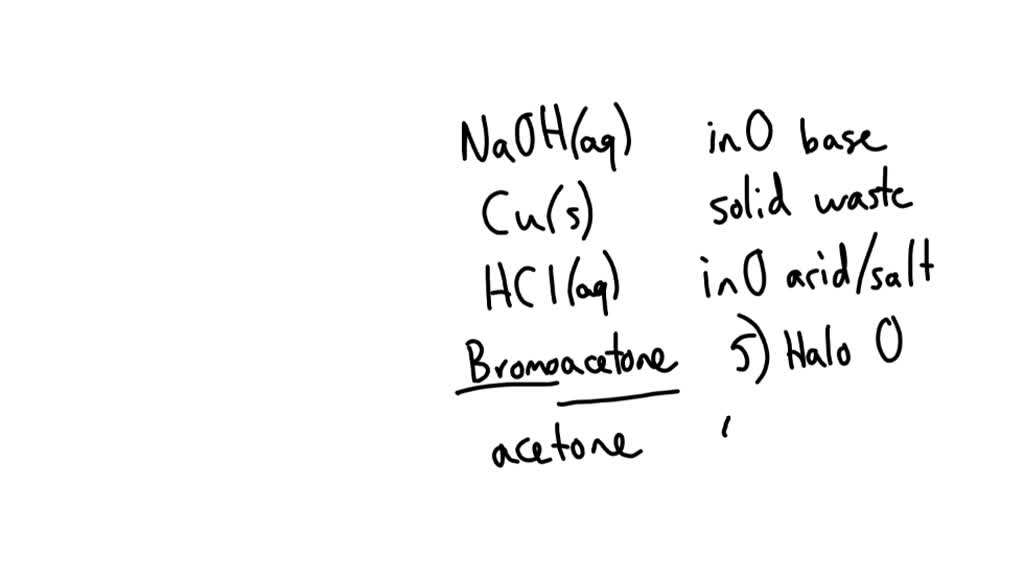 NaOH(aq) inO base
Cu(s) solid waste
HCl(aq) inO acid/salt
Bromoacetone 5) Halo O
acetone (